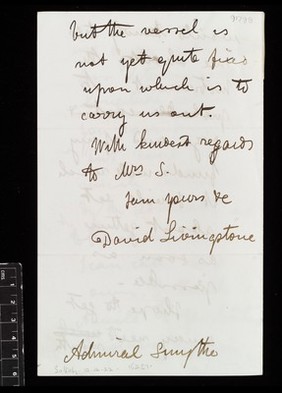 but the vessel is
not yet quite fixed
upon which is to
carry us out.
With kindest regards
to Mrs S.
I am yours &c
David Livingstone
Admiral Smythe